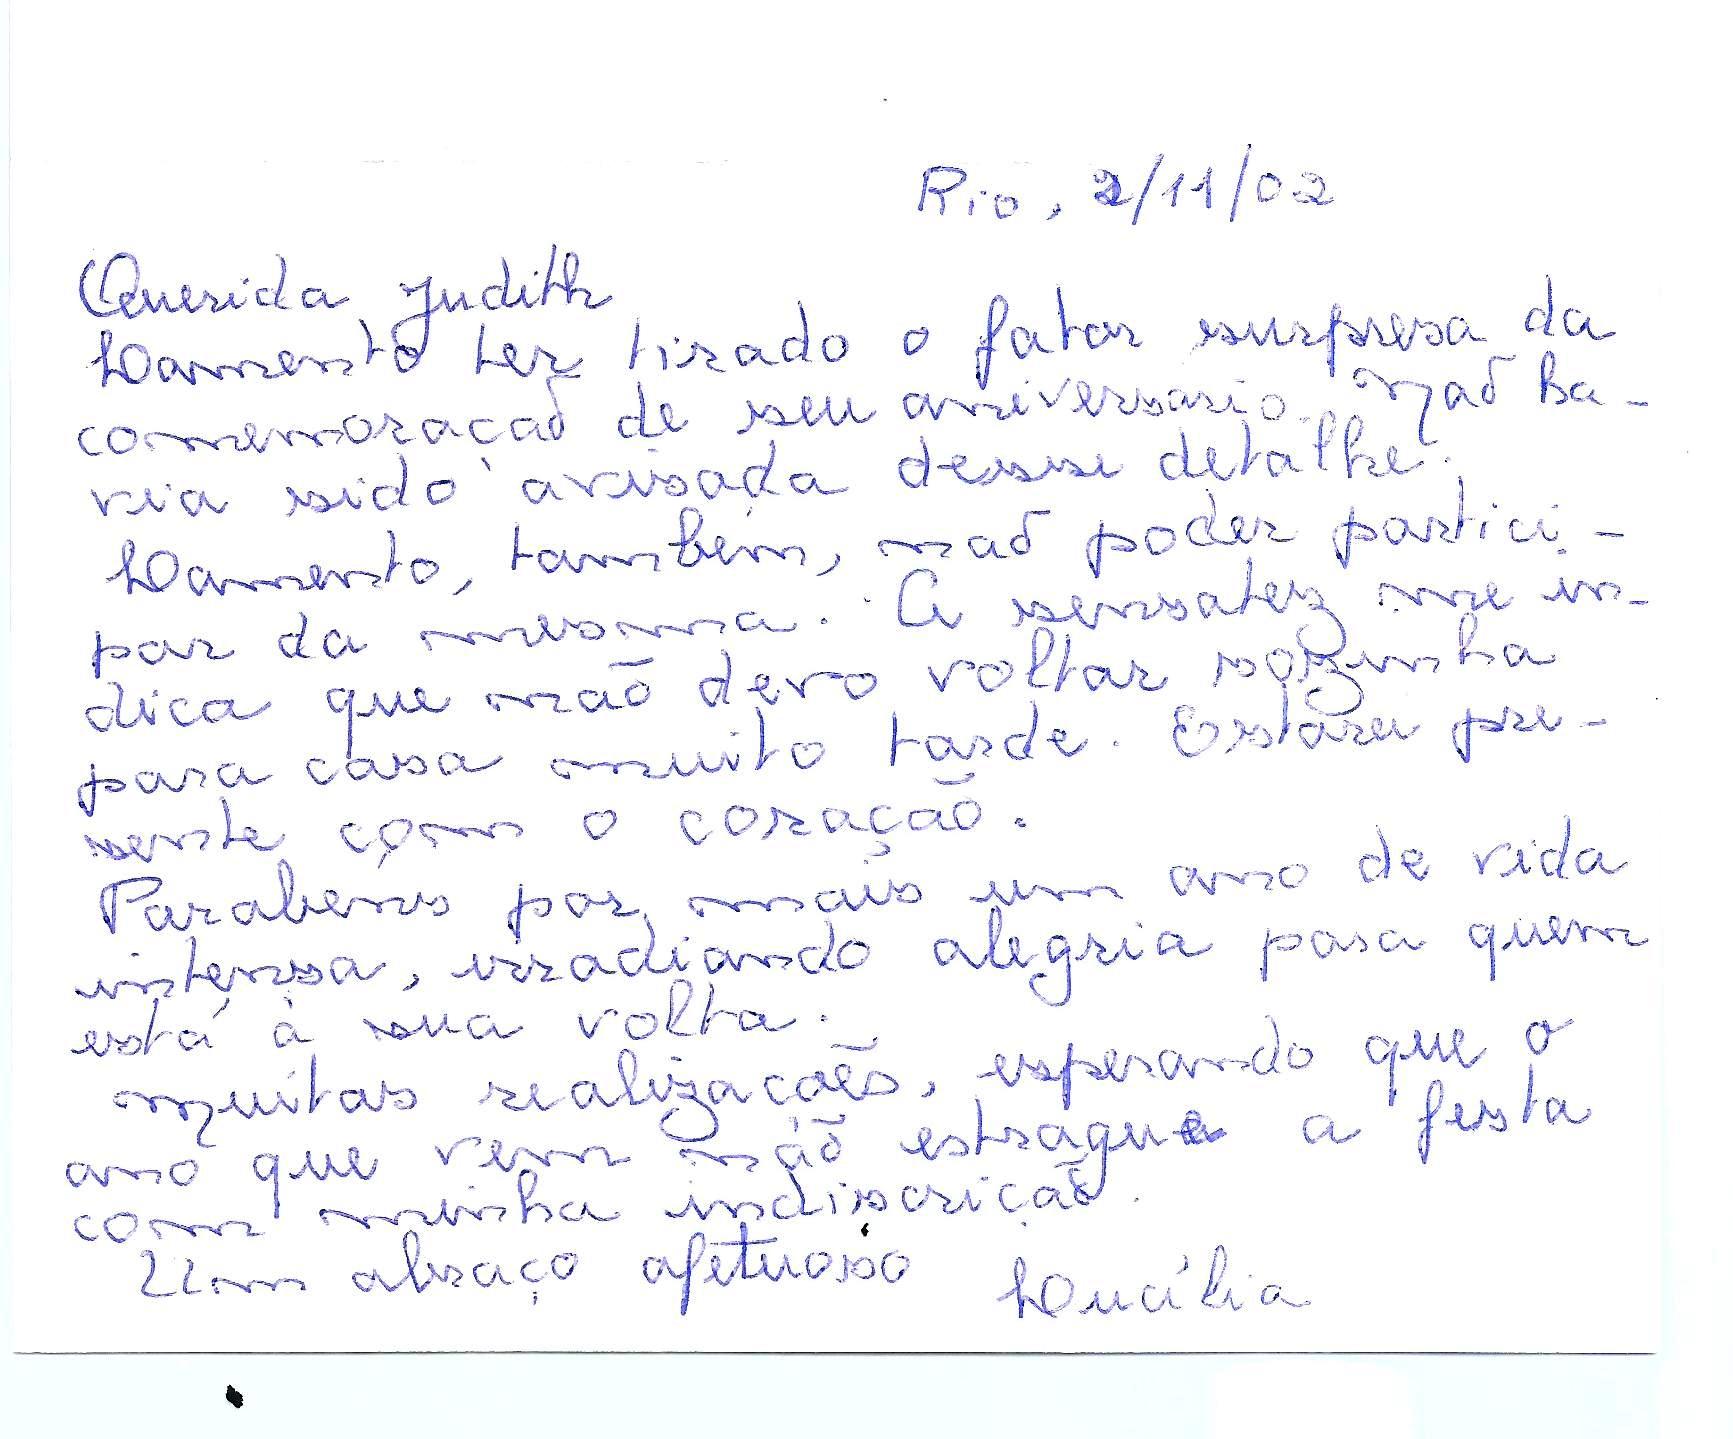 Rio, 2/11/02
Querida Judith
Lamento ter tirado o fator surpresa da
comemoração de seu aniversário. Não ha-
via sido avisada desse detalhe.
Lamento, também, não poder partici-
par da mesma. A sensatez me in-
dica que não devo voltar sozinha
para casa muito tarde. Estarei pre-
sente com o coração.
Parabens por mais um ano de vida
intensa, irradiando alegria para quem
está à sua volta.
Muitas realizações, esperando que o
ano que vem não estrague a festa
com minha indiscrição.
Um abraço afetuoso Lucília